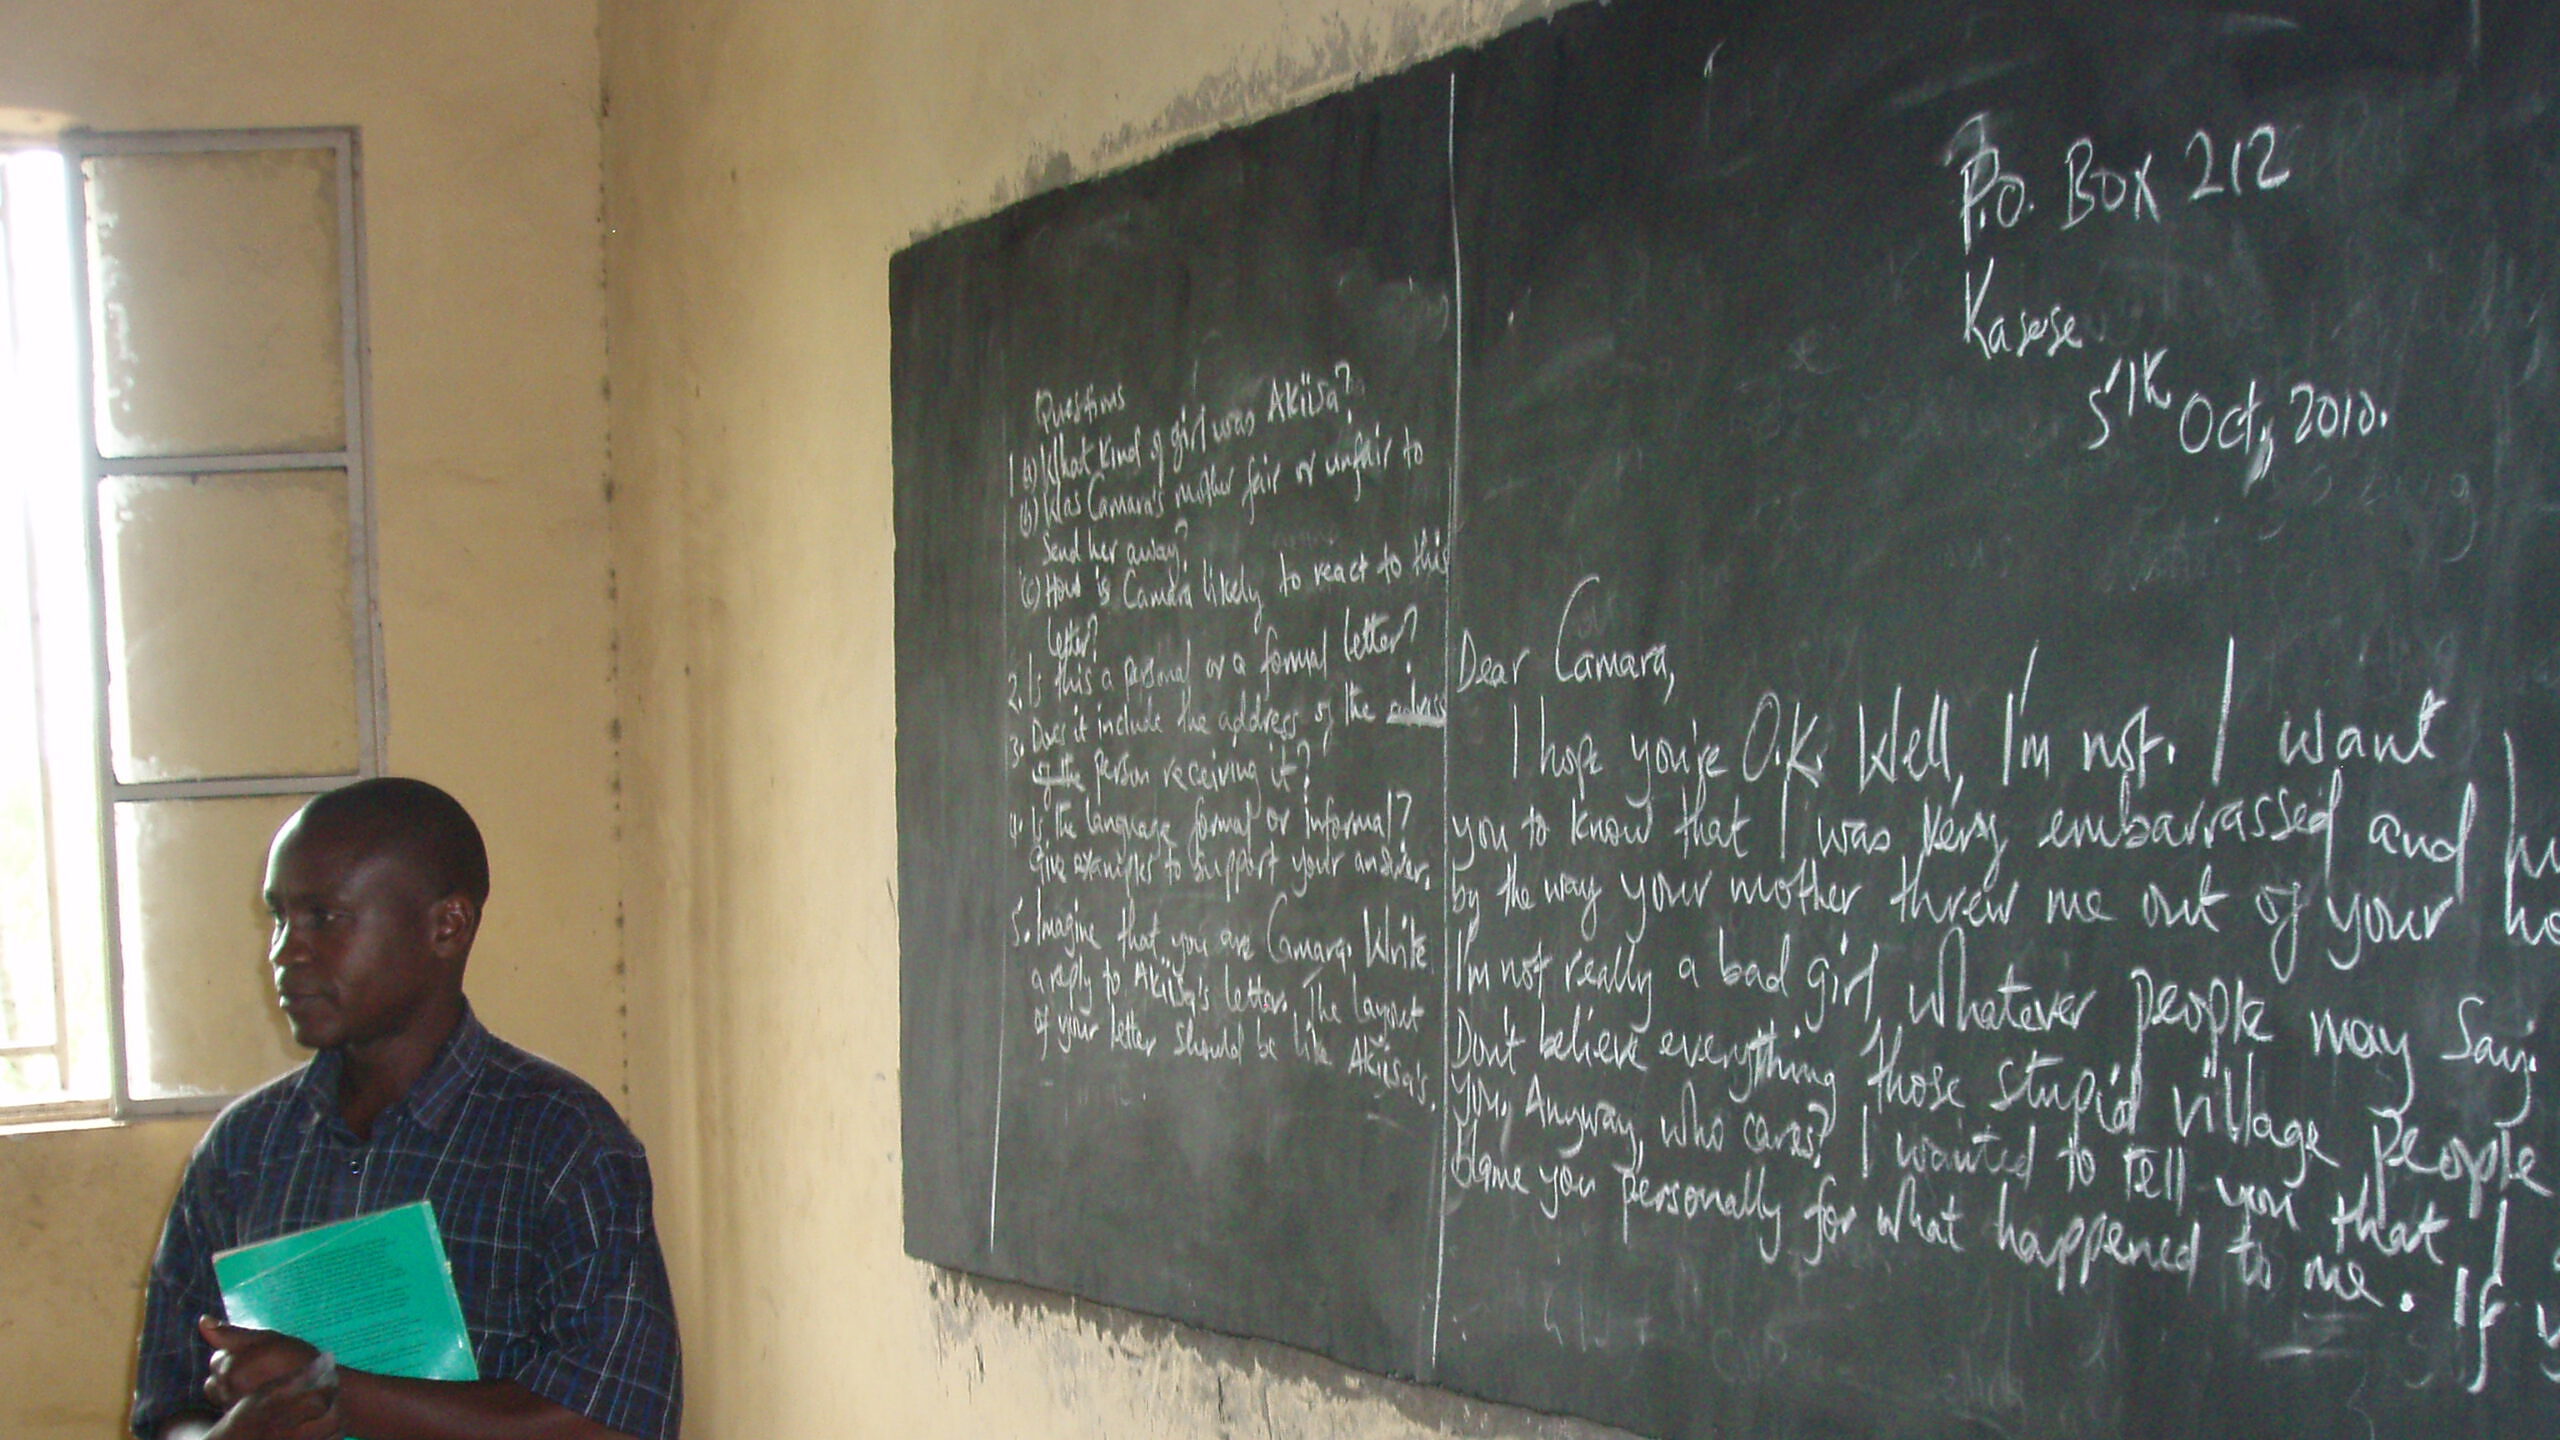 Questions
1 (a) What kind of girl was Akiisa?
(b) Was Camara's mother fair or unfair to
send her away?
(c) How is Camara likely to react to this
letter?
2. Is this a personal or a formal letter?
3. Does it include the address of the address
of the person receiving it?
4. Is the language formal or informal?
Give examples to support your answer.
5. Imagine that you are Camara. Write
a reply to Akiisa's letter. The layout
of your letter should be like Akiisa's.
P.O. Box 212
Kasese
5th Oct, 2010.
Dear Camara,
I hope you're O.K. Well, I'm not. I want
you to know that I was very embarrassed and
by the way your mother threw me out of your
I'm not really a bad girl, whatever people may say.
Don't believe everything those stupid village people
you. Anyway, who cares? I wanted to tell you that I
blame you personally for what happened to me. If